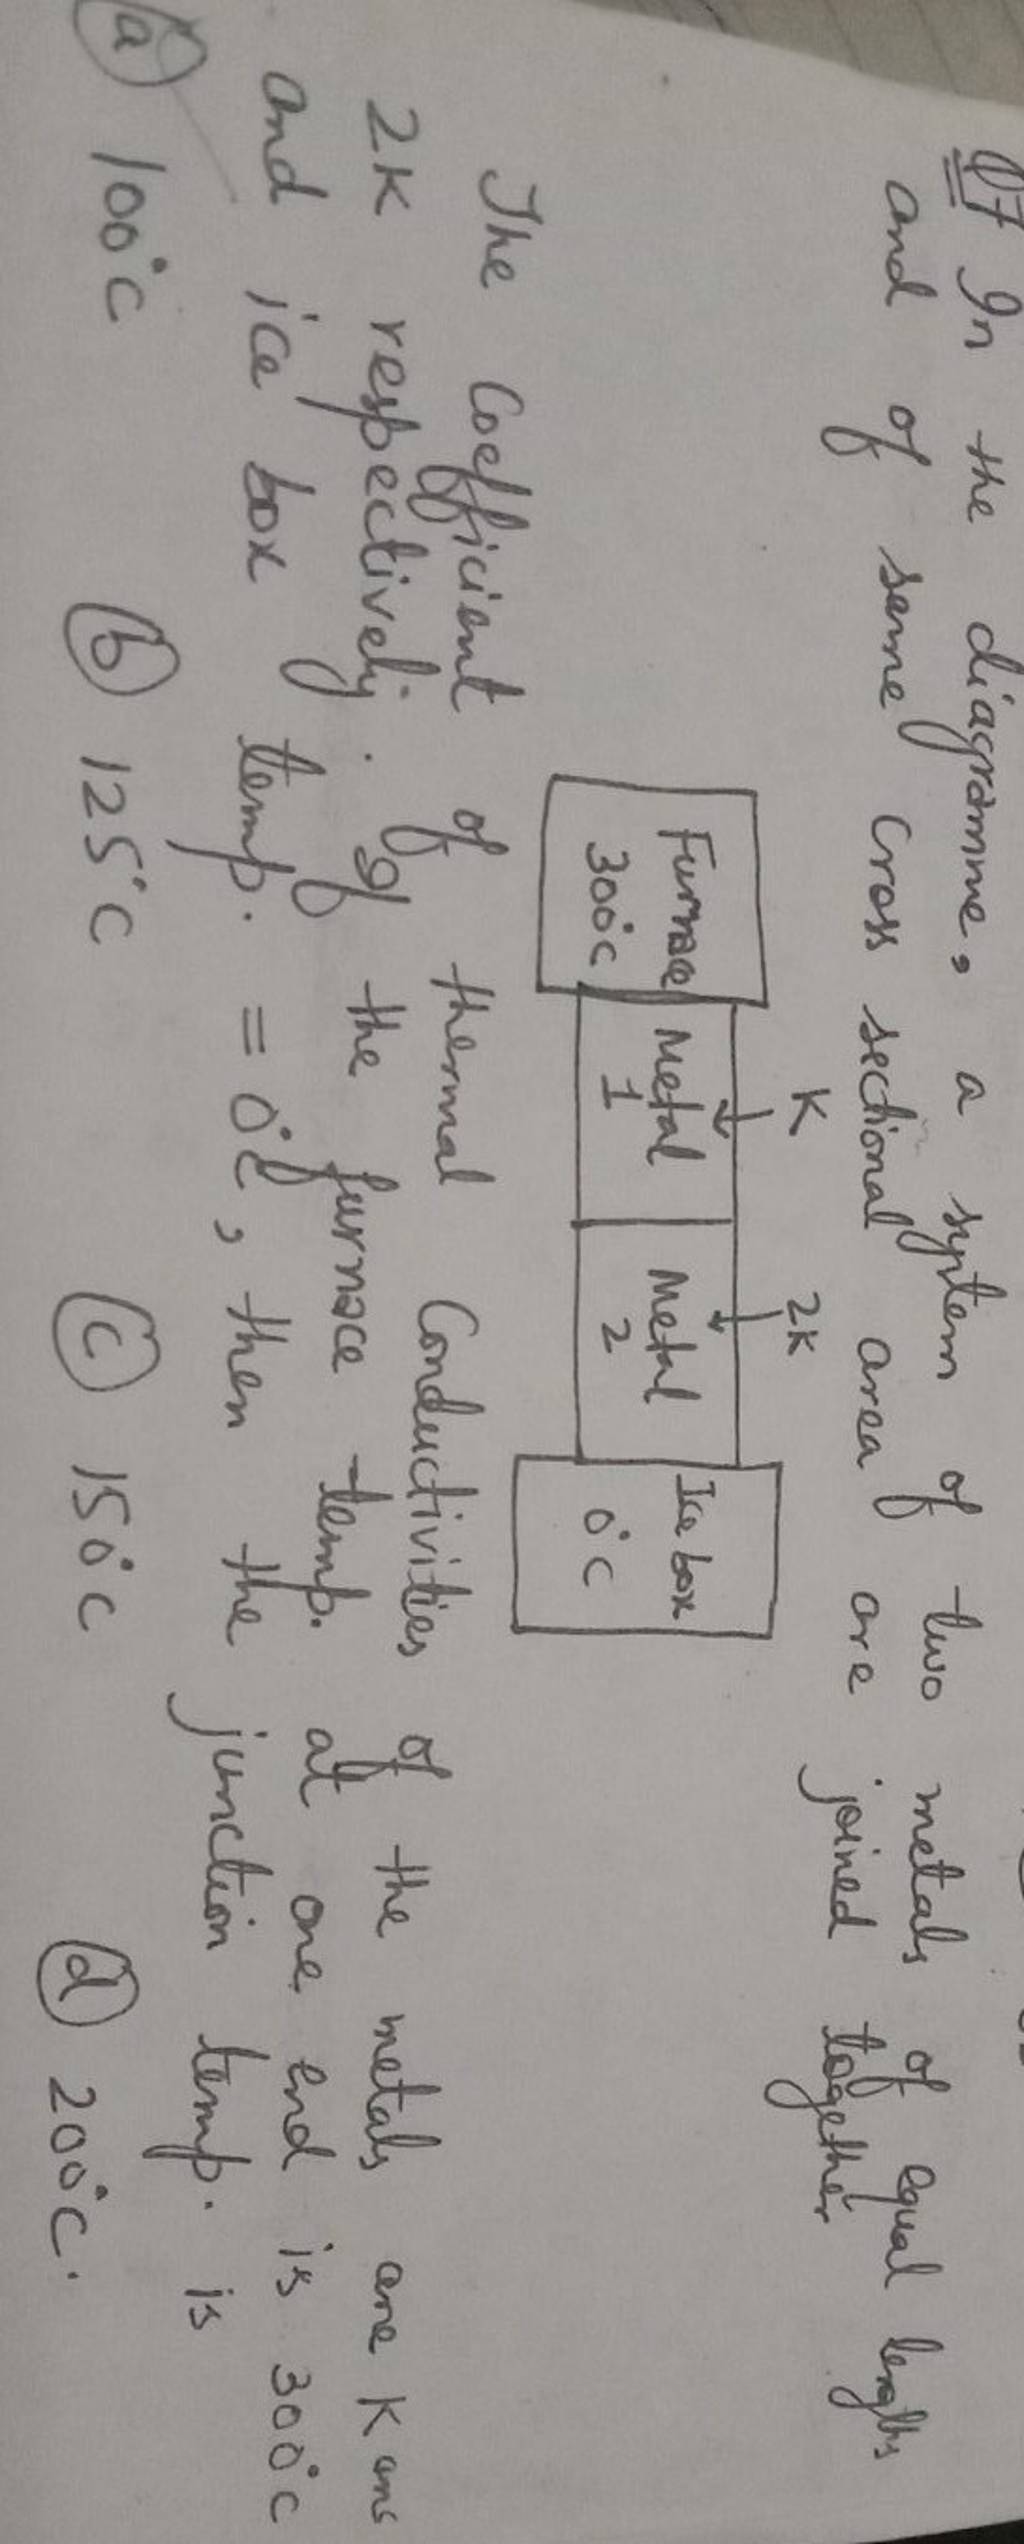 Q7 In the diagramme, a system of two metals of equal lengths
and of same cross sectional area are joined together
K 2K
Furnace Metal Metal Ice box
300°C 1 2 0°C
The Coefficient of thermal Conductivities of the metals are K and
2K respectively. If the furnace temp. at one end is 300°C
and ice box temp. = 0°C, then the junction temp. is
(a) 100°C (b) 125°C (c) 150°C (d) 200°C.